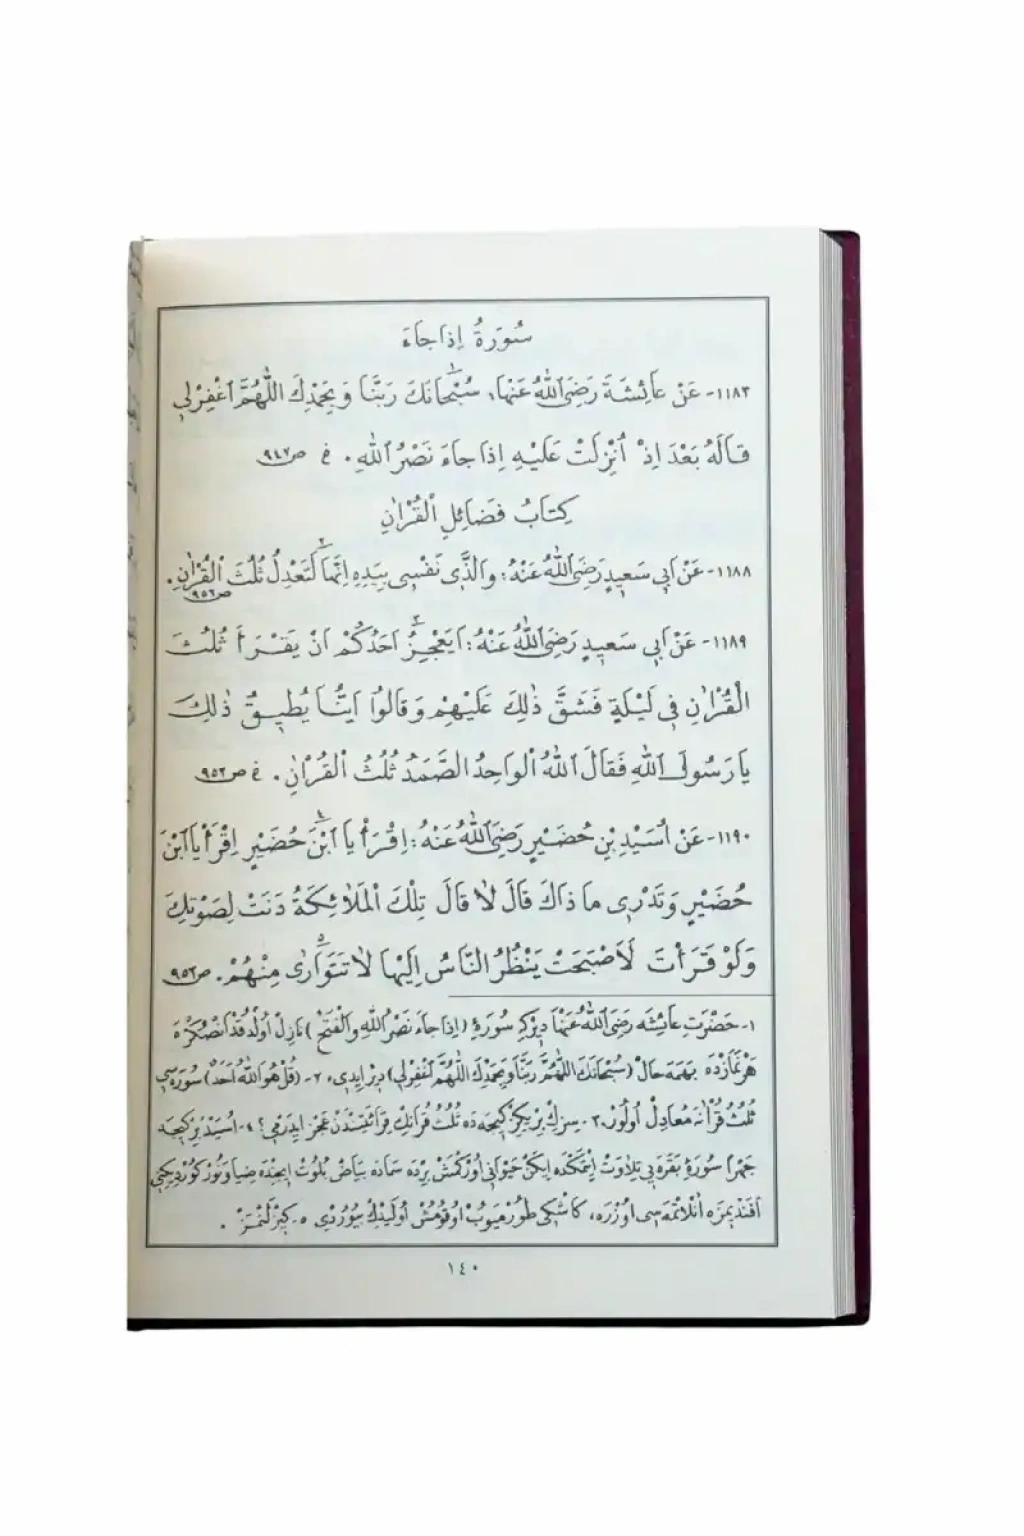 سُورَةُ اِذَا جَاءَ
١١٨٣- عَنْ عَائِشَةَ رَضِيَ اللّٰهُ عَنْهَا، سُبْحَانَكَ رَبَّنَا وَبِحَمْدِكَ اللّٰهُمَّ اغْفِرْلِي
قَالَهُ بَعْدَ اِذْ اُنْزِلَتْ عَلَيْهِ اِذَا جَاءَ نَصْرُ اللّٰهِ. خ ص٩٤٧
كِتَابُ فَضَائِلِ الْقُرْاٰنِ
١١٨٨- عَنْ اَبِي سَعِيدٍ رَضِيَ اللّٰهُ عَنْهُ: وَالَّذِي نَفْسِي بِيَدِهِ اِنَّهَا ٢ لَتَعْدِلُ ثُلُثَ الْقُرْاٰنِ. ص٩٥٢
١١٨٩- عَنْ اَبِي سَعِيدٍ رَضِيَ اللّٰهُ عَنْهُ: اَيَعْجِزُ ٣ اَحَدُكُمْ اَنْ يَقْرَأَ ثُلُثَ
الْقُرْاٰنِ فِي لَيْلَةٍ فَشَقَّ ذٰلِكَ عَلَيْهِمْ وَقَالُوا اَيُّنَا يُطِيقُ ذٰلِكَ
يَا رَسُولَ اللّٰهِ فَقَالَ اللّٰهُ الْوَاحِدُ الصَّمَدُ ثُلُثُ الْقُرْاٰنِ. خ ص٩٥٢
١١٩٠- عَنْ اُسَيْدِ بْنِ حُضَيْرٍ رَضِيَ اللّٰهُ عَنْهُ: اِقْرَأْ يَا ابْنَ ٤ حُضَيْرٍ اِقْرَأْ يَا ابْنَ
حُضَيْرٍ وَتَدْرِي مَا ذَاكَ قَالَ لَا قَالَ تِلْكَ الْمَلٰائِكَةُ دَنَتْ لِصَوْتِكَ
وَلَوْ قَرَأْتَ لَاَصْبَحَتْ يَنْظُرُ النَّاسُ اِلَيْهَا لَا تَتَوَارٰى ٥ مِنْهُمْ. ص٩٥٢
١- حَضْرَتِ عَائِشَه رَضِيَ اللّٰهُ عَنْهَا دِيرْكِه سُورَۀِ (اِذَا جَاءَ نَصْرُ اللّٰهِ وَالْفَتْحُ) نَازِلْ اُولْدُقْدَنْ صُكْرَه
هَرْ نَمَازْدَه بَهَمَه حَالْ (سُبْحَانَكَ اللّٰهُمَّ رَبَّنَا وَبِحَمْدِكَ اللّٰهُمَّ اغْفِرْلِي) دِيرْ اِيدِي. ٢- (قُلْ هُوَ اللّٰهُ اَحَدٌ) سُورَه سِي
ثُلُثُ قُرْاٰنَه مُعَادِلْ اُولُورْ. ٣- سِزِكْ بِرِيكِزْ كِيجَه دَه ثُلُثُ قُرْاٰنِكْ قِرَائَتِنْدَنْ عَجْزْ اِيدَرْمِي؟ ٤- اُسَيْدْ بِرْ كِيجَه
جَهْرًا سُورَۀِ بَقَرَه يِي تِلَاوَتْ اِيتْمَكْدَه اِيكَنْ حَيْوَانِي اُورْكْمُشْ بِرْدَه سَمَادَه بَيَاضْ بُلُوتْ اِيچِنْدَه ضِيَا وَنُورْ كُورْدِيكِنِي
اَفَنْدِيمِزَه اٰكْلَاتْمَه سِي اُوزْرَه، كَاشْكِي طُورْمَيُوبْ اُوقُومُشْ اُولَيْدِكْ بُيُورْدِي. ٥- كِيزْلَنْمَزْ.
١٤٠